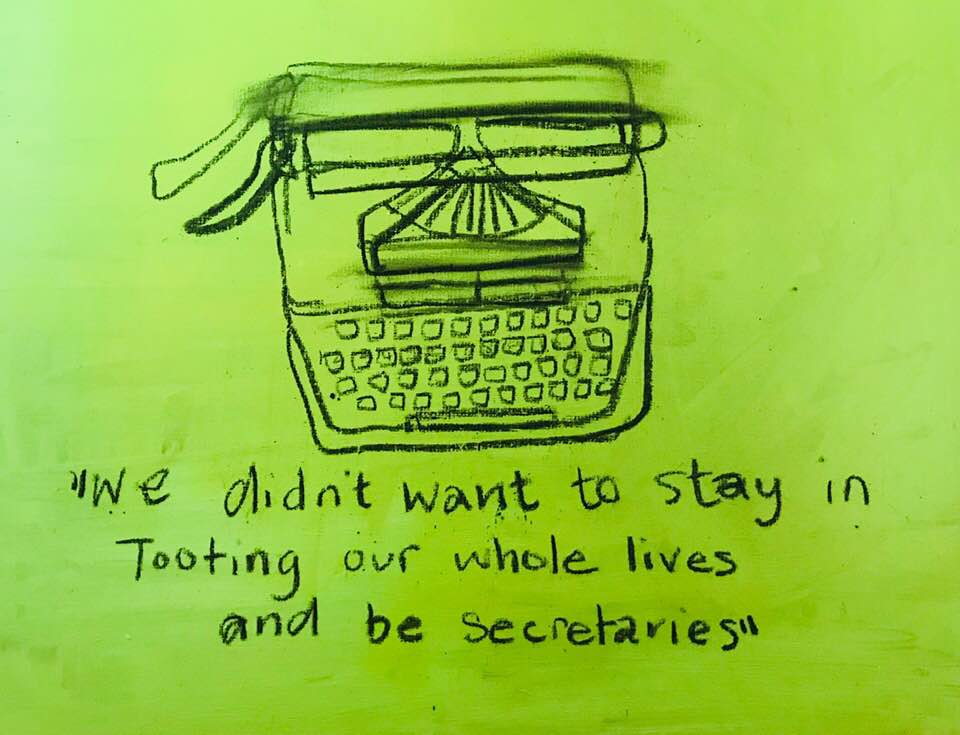 "We didn't want to stay in
Tooting our whole lives
and be secretaries"